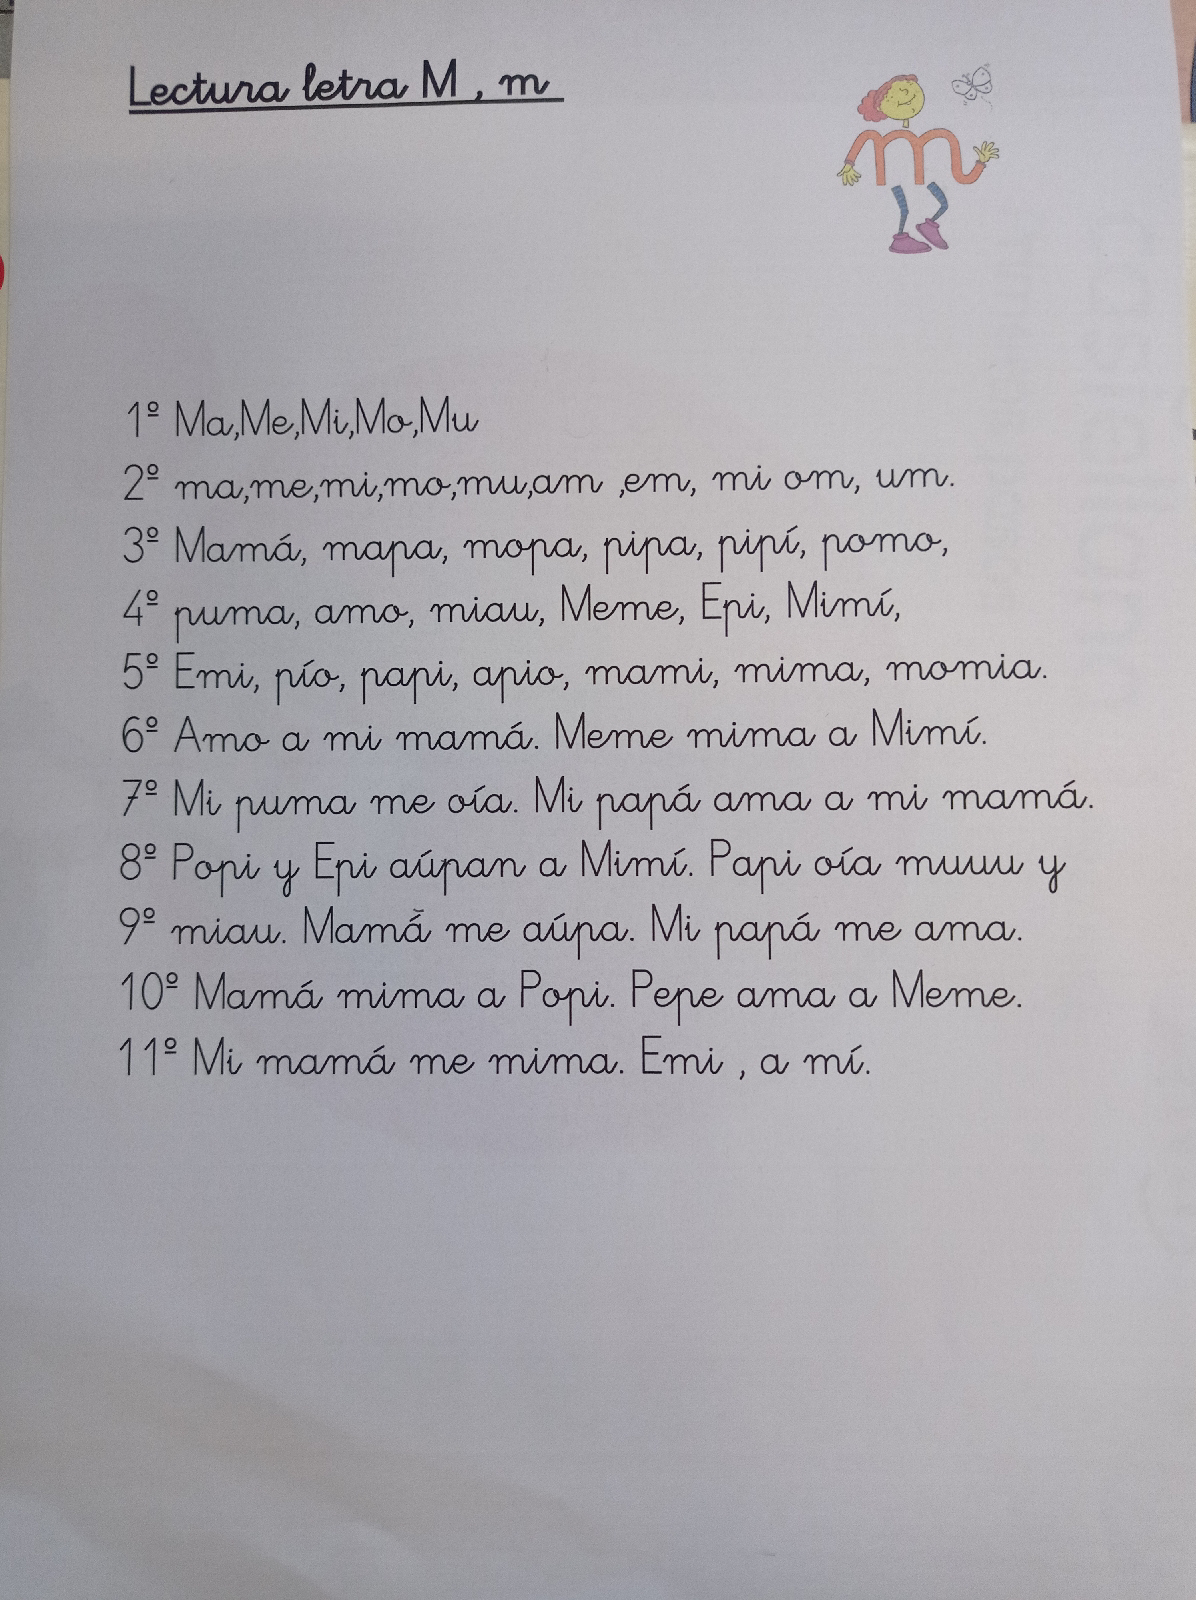 Lectura letra M , m
1º Ma,Me,Mi,Mo,Mu
2º ma,me,mi,mo,mu,am ,em, mi om, um.
3º Mamá, mapa, mopa, pipa, pipí, pomo,
4º puma, amo, miau, Meme, Epi, Mimí,
5º Emi, pío, papi, apio, mami, mima, momia.
6º Amo a mi mamá. Meme mima a Mimí.
7º Mi puma me oía. Mi papá ama a mi mamá.
8º Popi y Epi aúpan a Mimí. Papi oía muuu y
9º miau. Mamá me aúpa. Mi papá me ama.
10º Mamá mima a Popi. Pepe ama a Meme.
11º Mi mamá me mima. Emi , a mí.